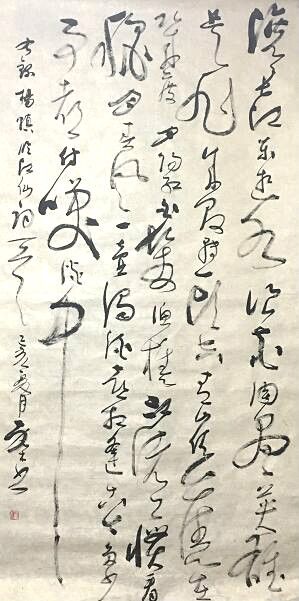 滚滚长江东逝水浪花淘尽英雄
是非成败转头空青山依旧在
几度夕阳红白发渔樵江渚上惯看
秋月春风一壶浊酒喜相逢古今多少
事都付笑谈中
右录杨慎临江仙词一首 亥夏月 书